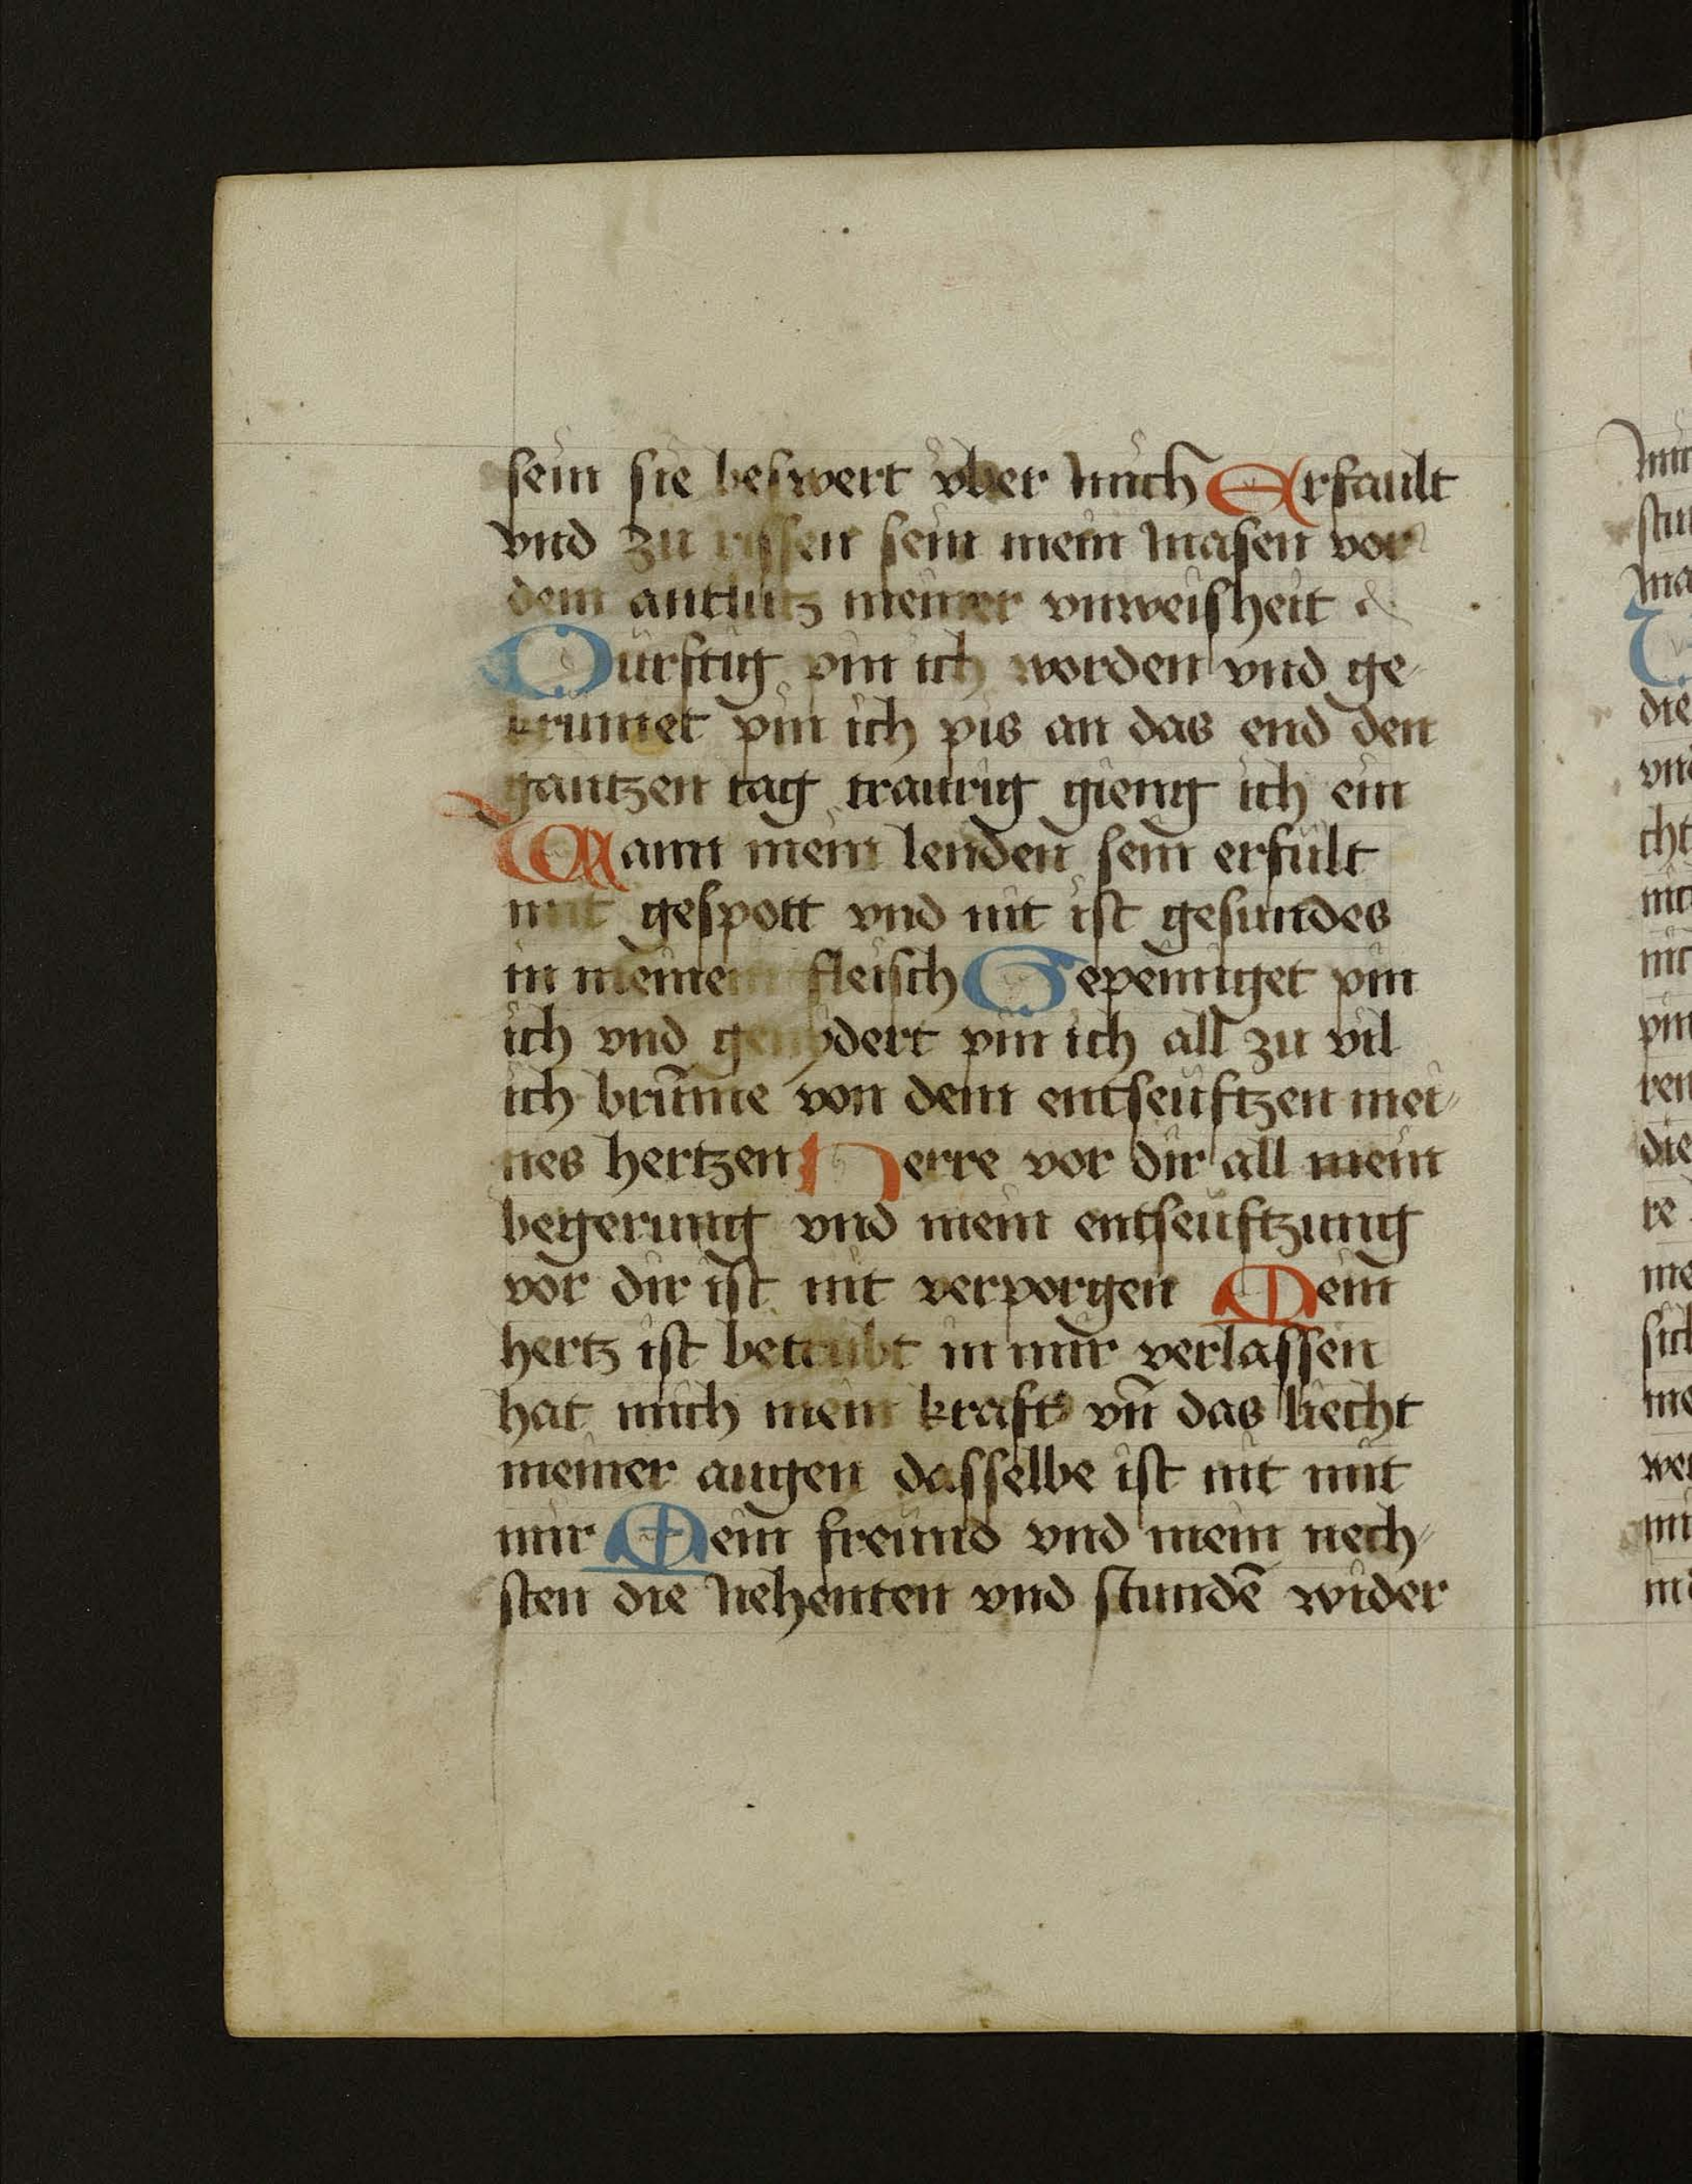 sein sie beswert vber mich Erfault
vnd zu rissen sein mein masen vor
dem antlutz meiner vnweisheit
Durftig pin ich worden vnd ge-
krummet pin ich pis an das end den
gantzen tag traurig gieng ich ein
Wann mein lenden sein erfult
mit gespott vnd nit ist gesundes
in meinem fleisch Gepeiniget pin
ich vnd genydert pin ich all zu vil
ich brūme von dem entseuftzen mei-
nes hertzen Herre vor dir all mein
begerung vnd mein entseuftzung
vor dir ist nit verporgen Mein
hertz ist betrubt in mir verlassen
hat mich mein kraft vn̄ das liecht
meiner augen dasselbe ist nit mit
mir Mein freund vnd mein nech-
sten die nehenten vnd stundē wider